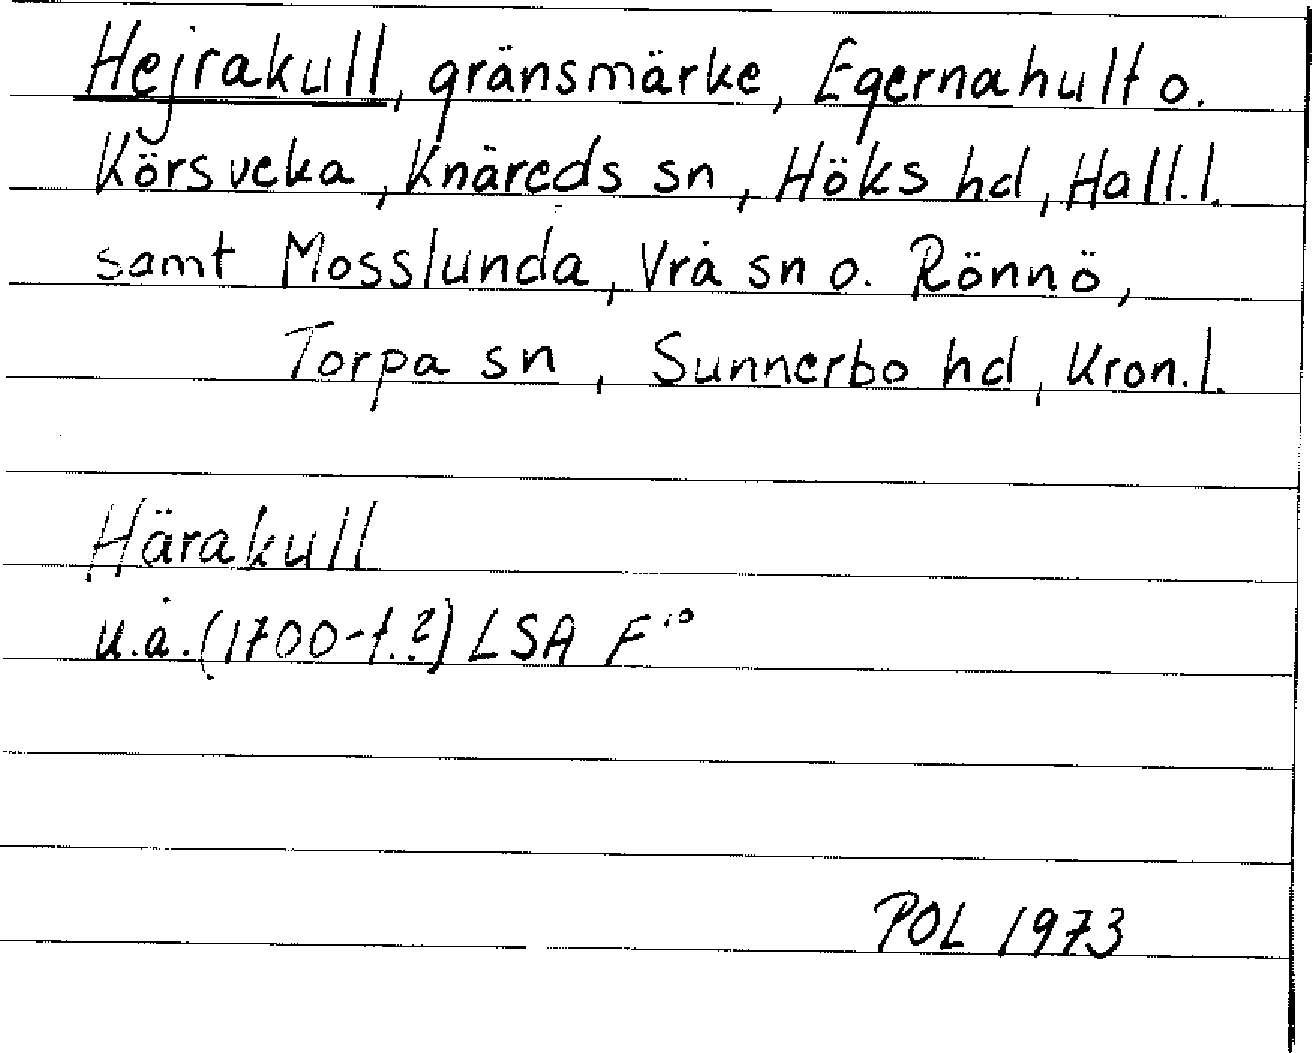 Hejrakull, gränsmärke, Egernahult o.
Körsveka, Knäreds sn, Höks hd, Hall.l.
samt Mosslunda, Vrå sn o. Rönnö,
Torpa sn, Sunnerbo hd, Kron.l.
Härakull
u.å. (1700-t.?) LSA F¹⁰
POL 1973